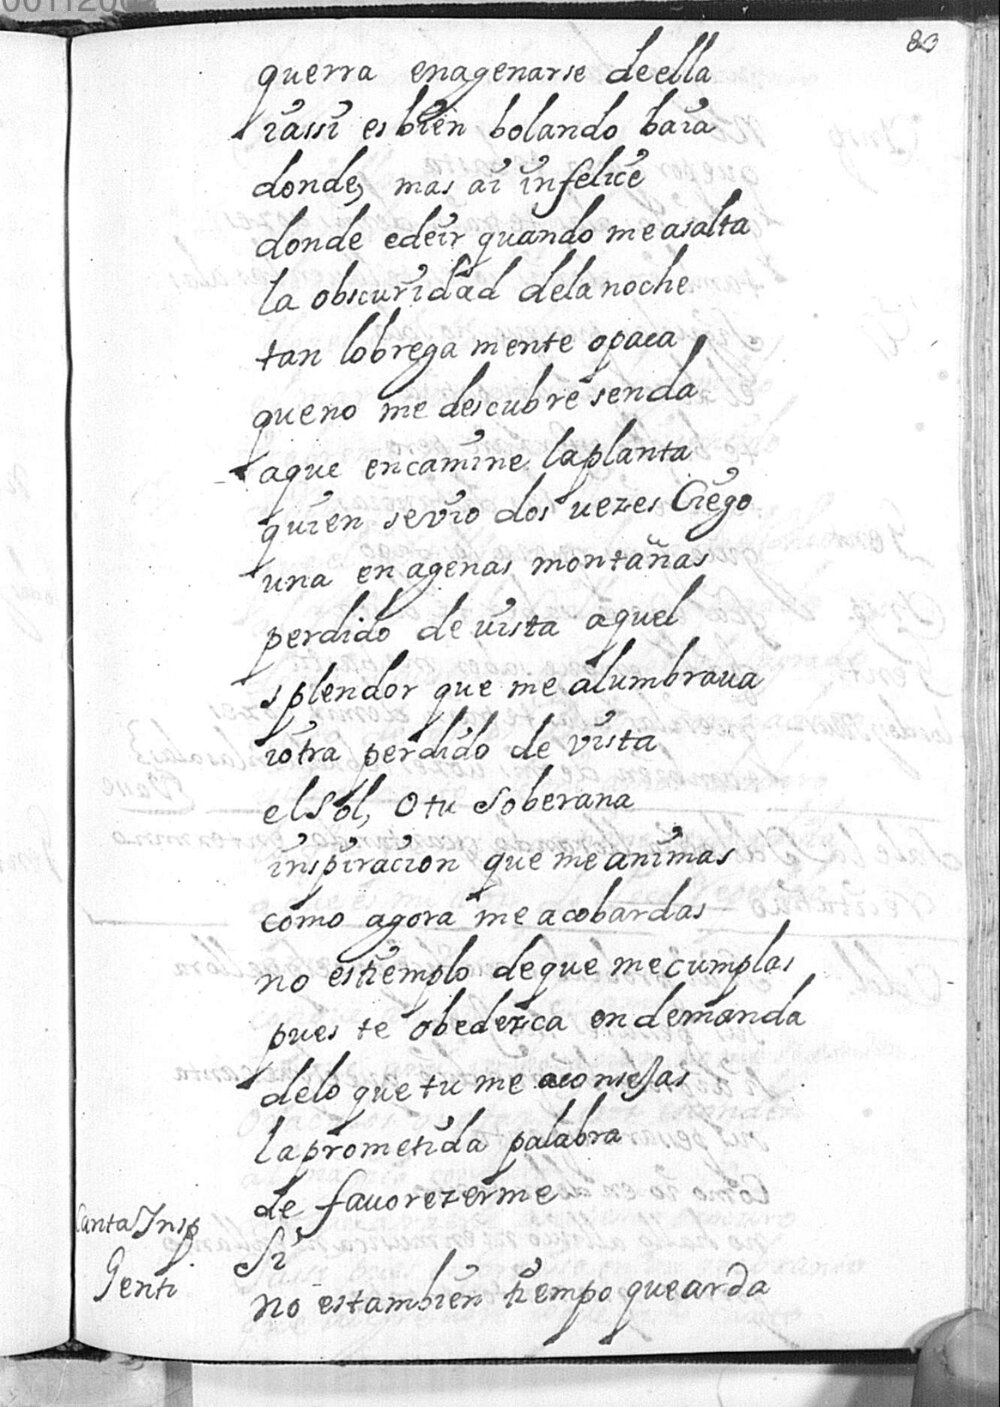 83
querra enagenarse deella
iassi es bien bolando baia
donde, mas ai infelice
donde edeir quando measalta
la obscuridad delanoche
tan lobrega mente opaca
queno me descubre senda
aque encamine laplanta
quien sevio dos vezes Ciego
una en agenas montañas
perdido de vista aquel
splendor que me alumbraua
iotra perdido de vista
elSol, o tu soberana
inspiracion que meanimas
como agora me acobardas
no estiemplo deque mecumplas
pues te obedezca en demanda
delo que tu me aconsejas
laprometida palabra
de fauorezerme
Canta Insp Si
Genti no estambien tiempo quearda